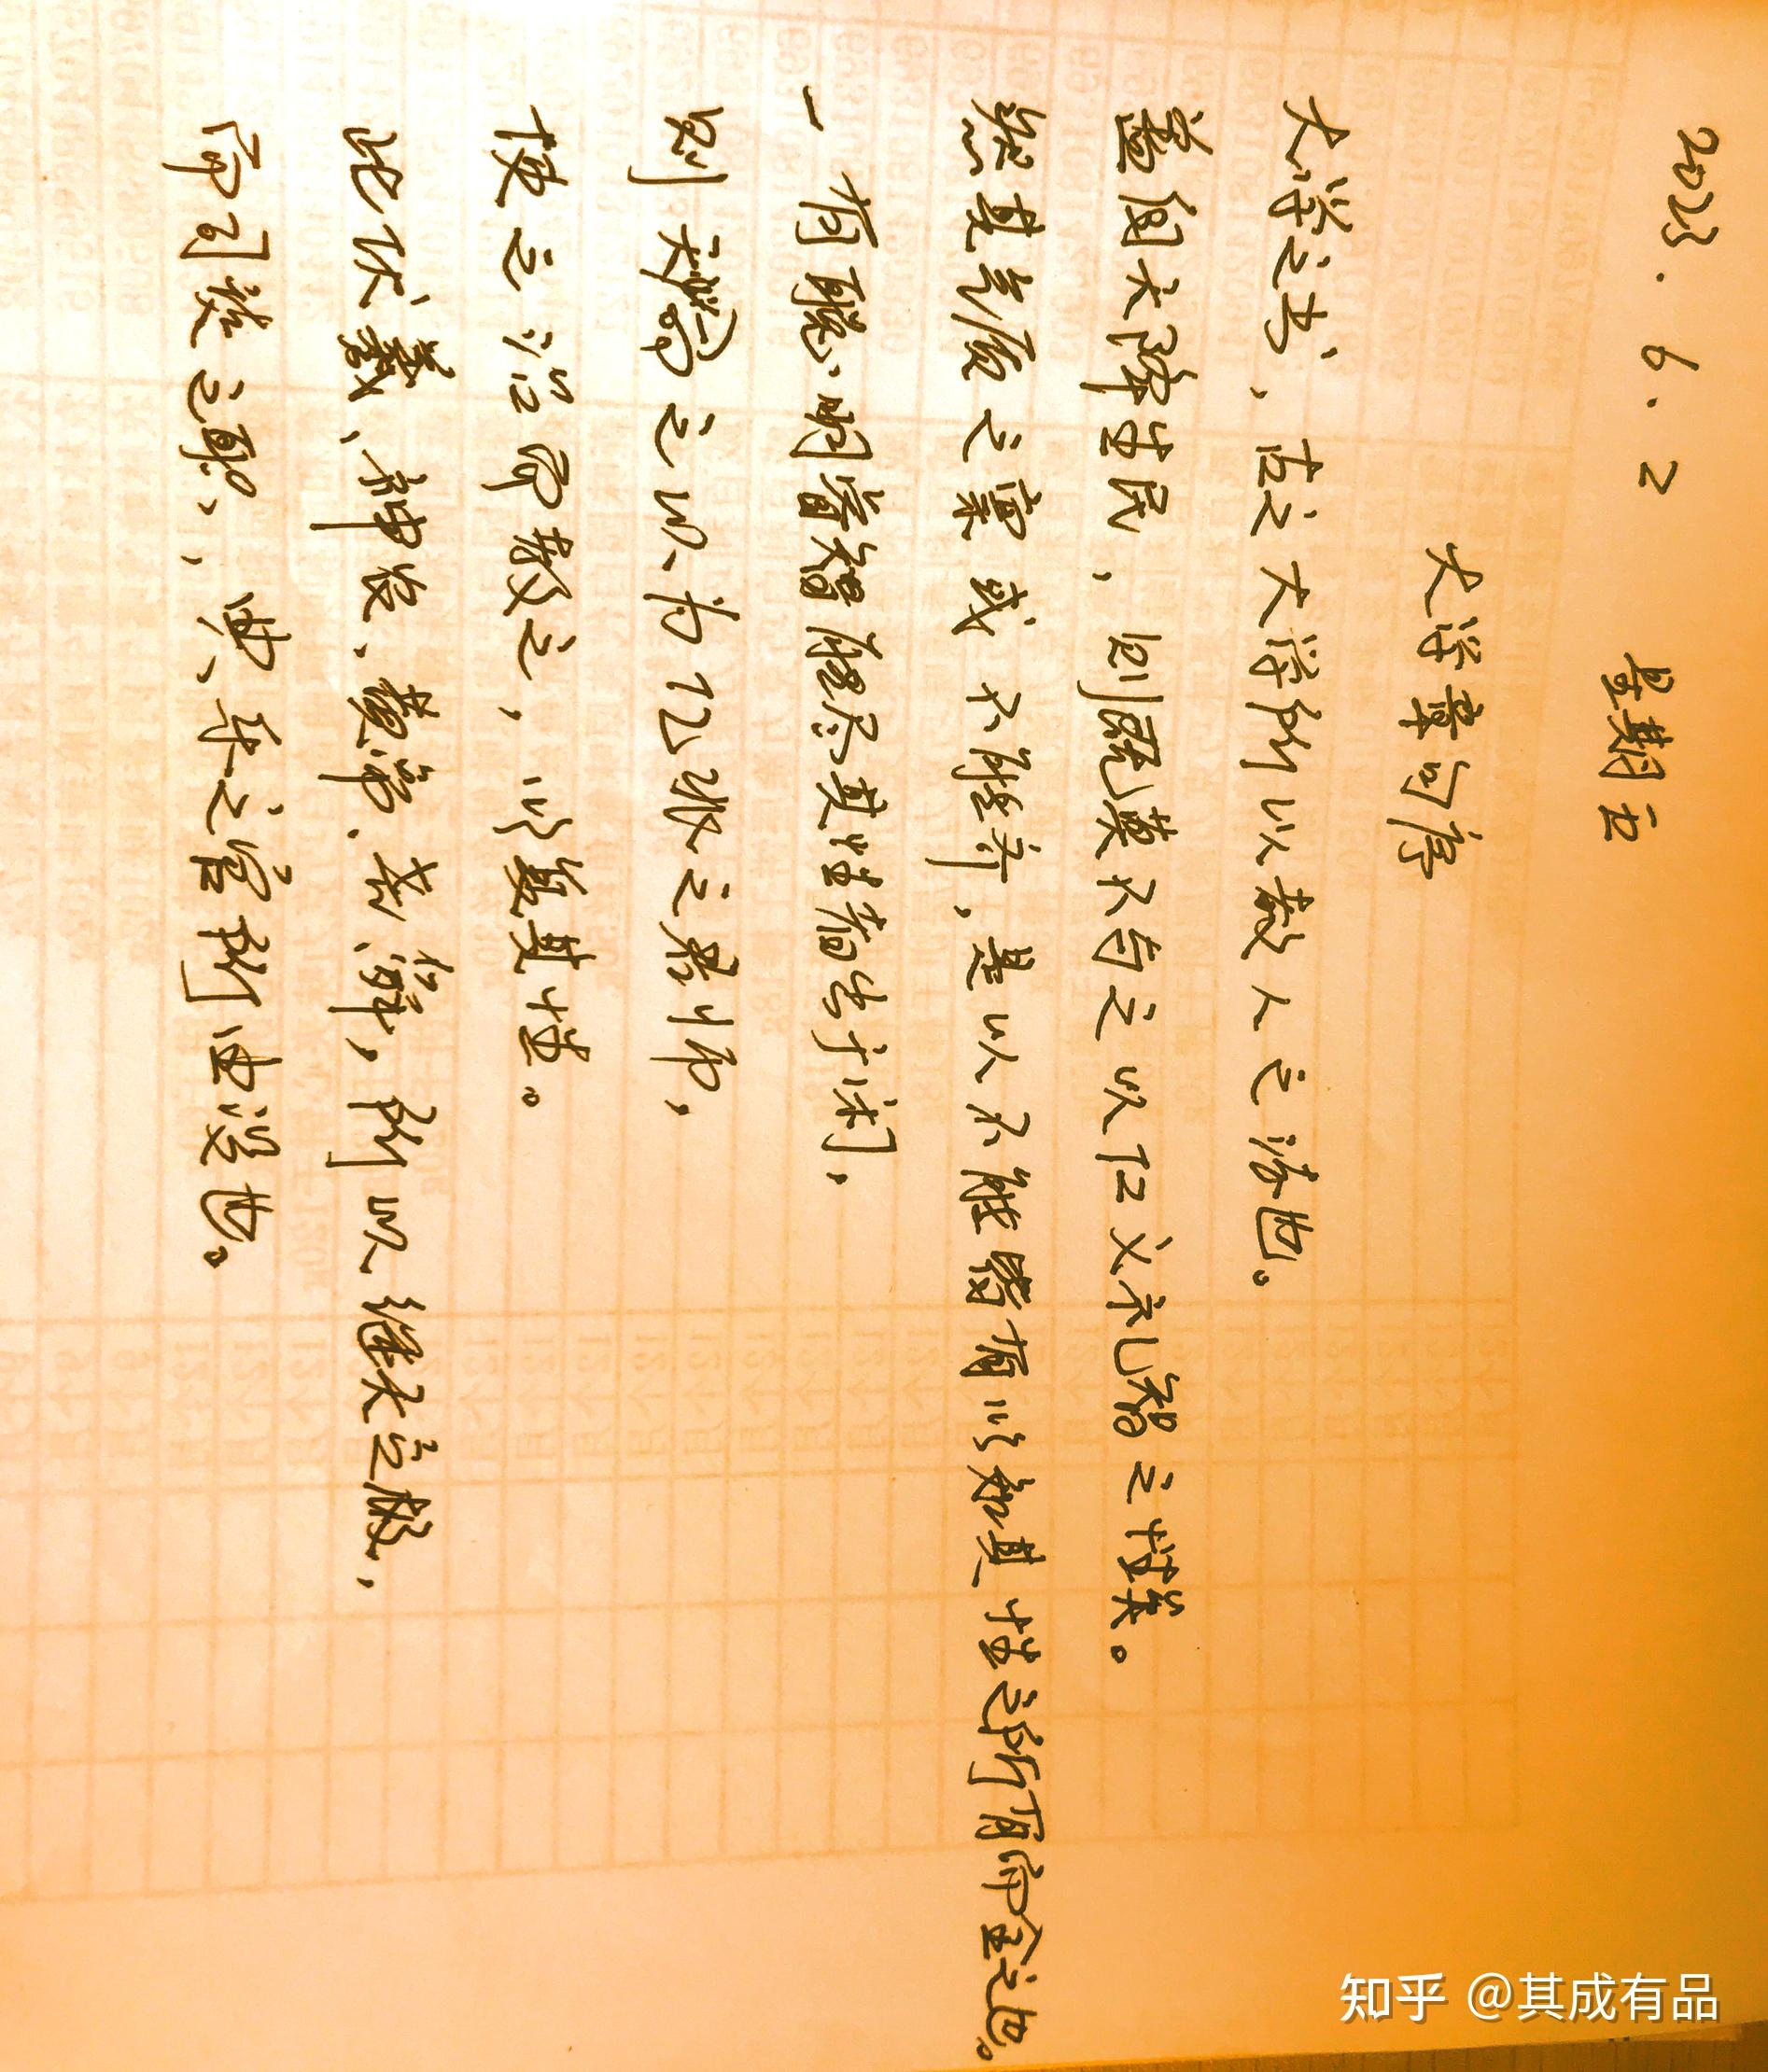 2023.6.2 星期五
大学章句序
大学之书，古之大学所以教人之法也。
盖自天降生民，则既莫不与之以仁义礼智之性矣。
然其气质之禀或不能齐，是以不能皆有以知其性之所有而全之也。
一有聪明睿智能尽其性者出于闲，
则天必命之以为亿兆之君师，
使之治而教之，以复其性。
此伏羲、神农、黄帝、尧舜，所以继天立极，
而司徒之职，典乐之官所由设也。
知乎 @其成有品